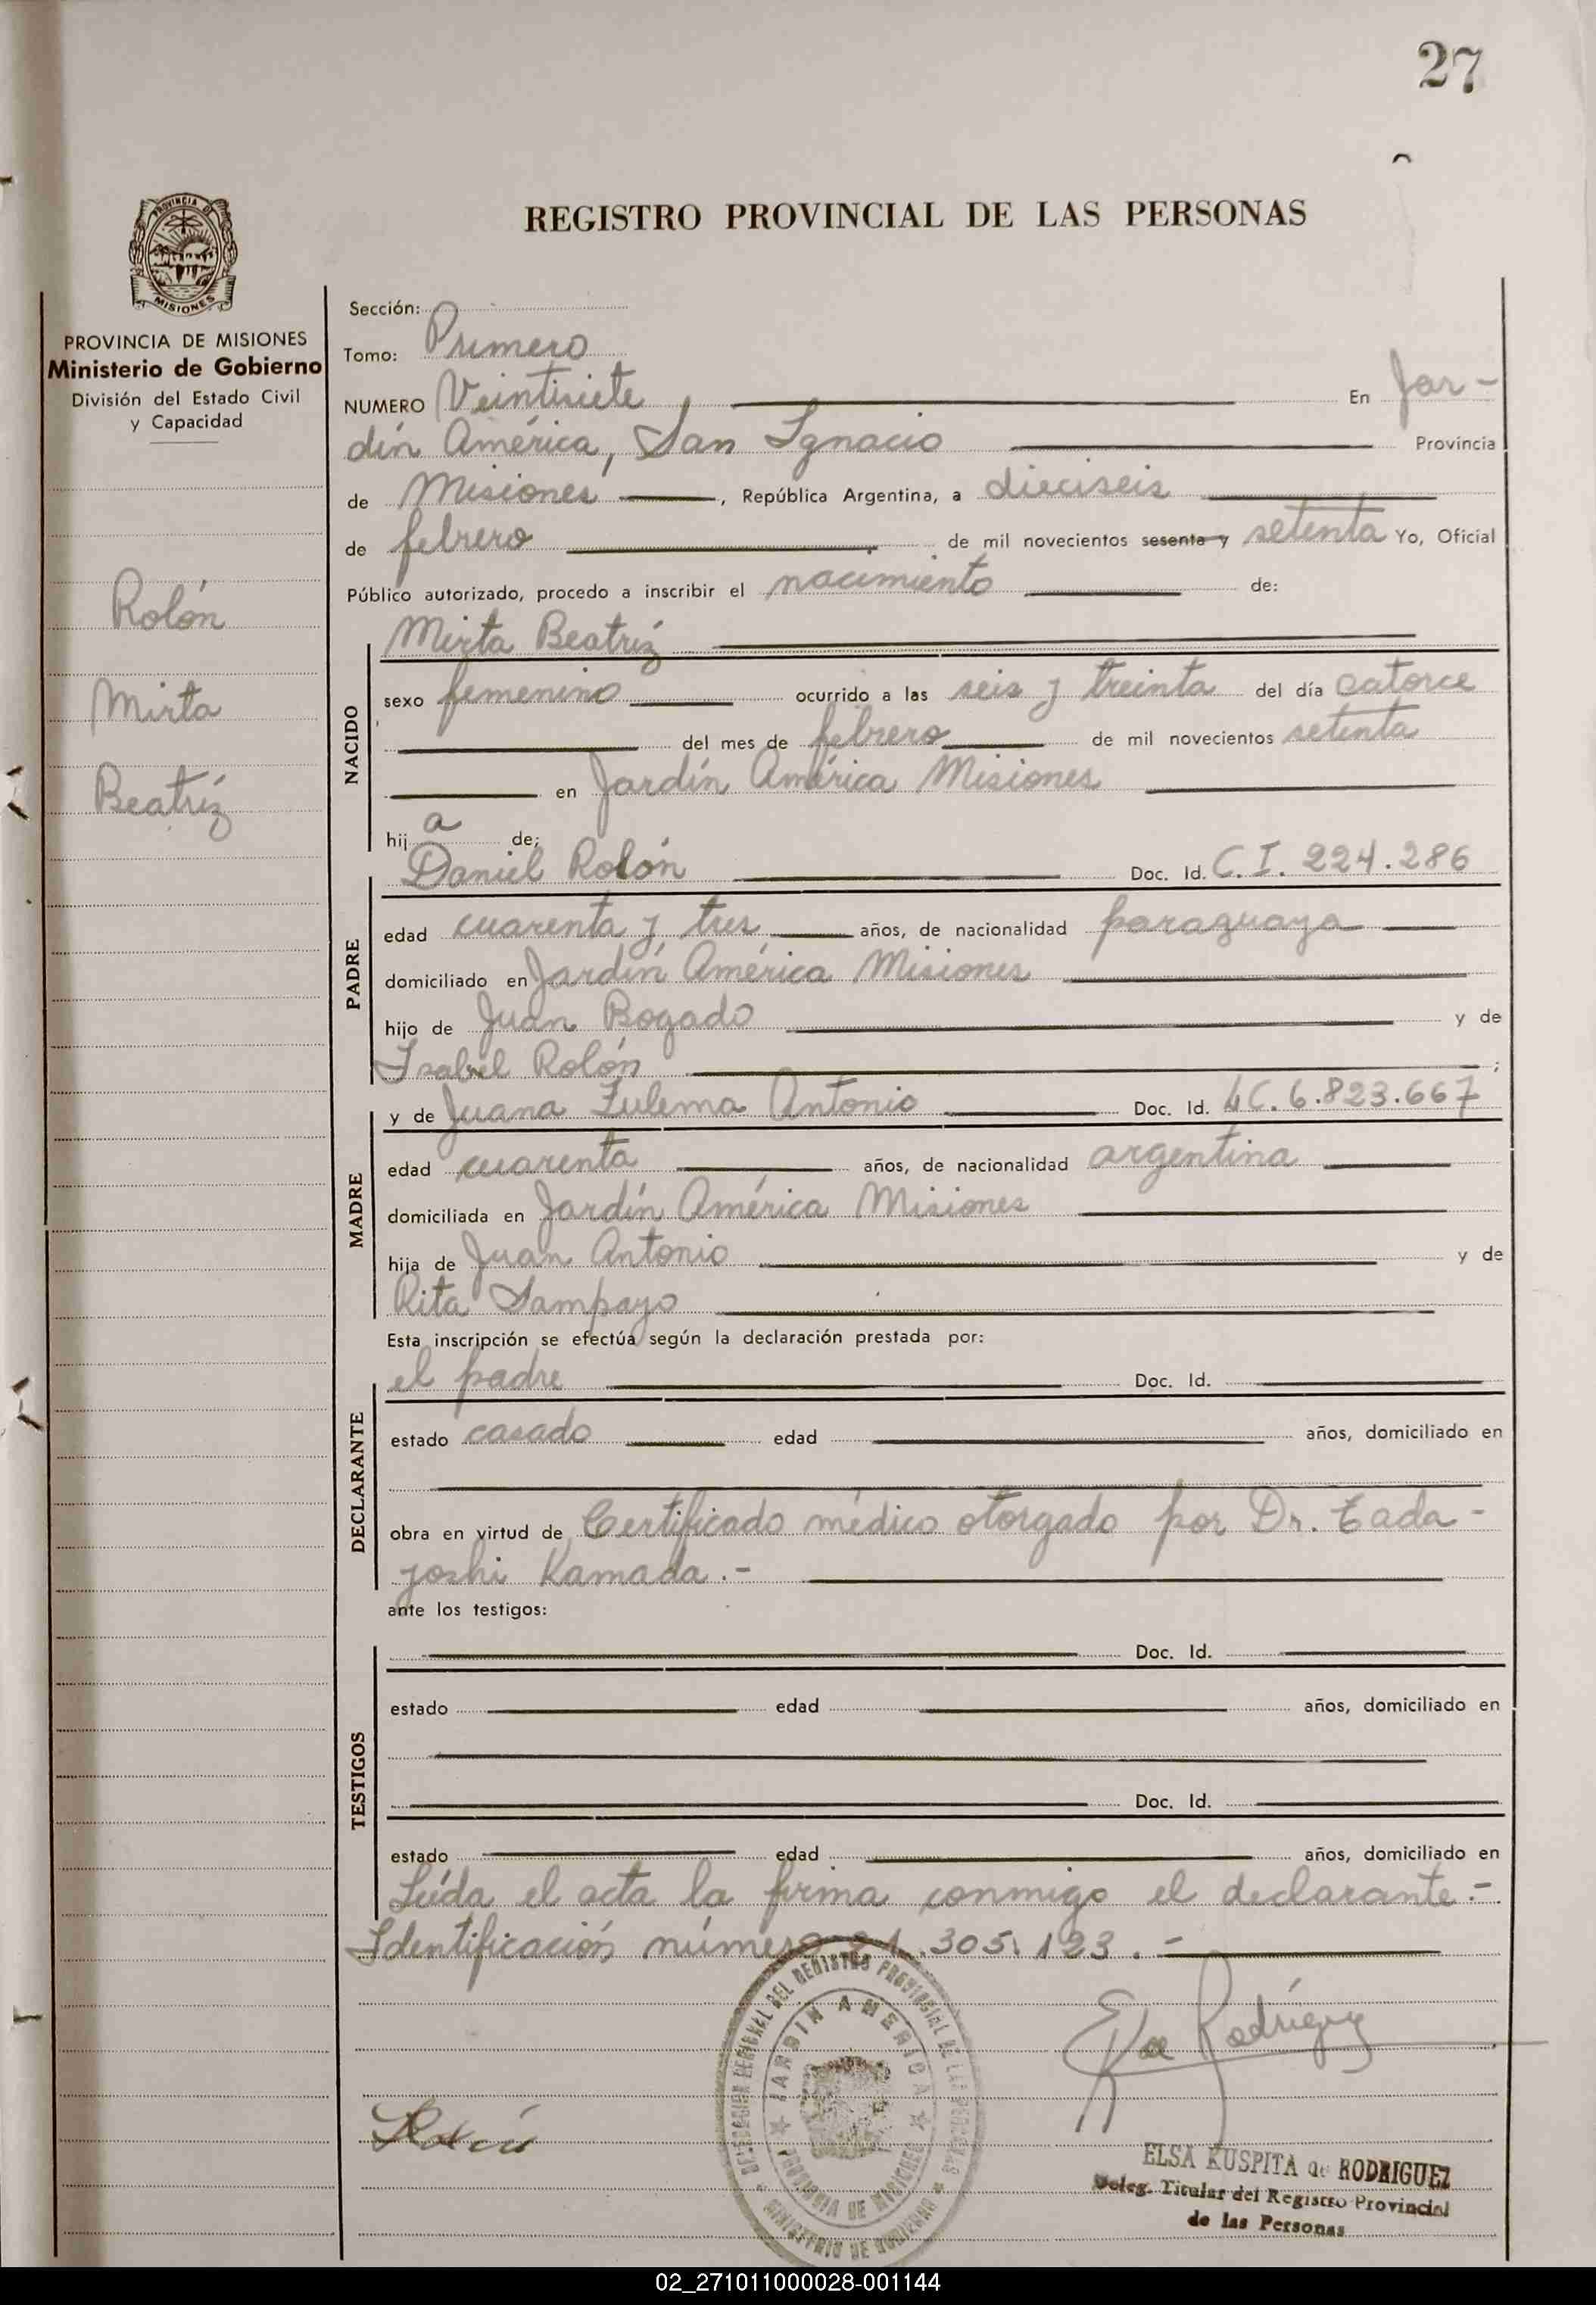 27
REGISTRO PROVINCIAL DE LAS PERSONAS
PROVINCIA DE
MISIONES
PROVINCIA DE MISIONES
Ministerio de Gobierno
División del Estado Civil
y Capacidad
Rolón
Mirta
Beatríz
Sección:
Tomo: Primero
NUMERO Veintisiete En Jar-
dín América, San Ignacio Provincia
de Misiones, República Argentina, a dieciseis
de febrero de mil novecientos sesenta y setenta Yo, Oficial
Público autorizado, procedo a inscribir el nacimiento de:
Mirta Beatríz
NACIDO
sexo femenino ocurrido a las seis y treinta del día catorce
del mes de febrero de mil novecientos setenta
en Jardín América Misiones
hija de;
Daniel Rolón Doc. Id. C.I. 224.286
PADRE
edad cuarenta y tres años, de nacionalidad paraguaya
domiciliado en Jardín América Misiones
hijo de Juan Bogado y de
Isabel Rolón ;
y de Juana Zulema Antonio Doc. Id. LC. 6.823.667
MADRE
edad cuarenta años, de nacionalidad argentina
domiciliada en Jardín América Misiones
hija de Juan Antonio y de
Rita Sampayo
Esta inscripción se efectúa según la declaración prestada por:
el padre Doc. Id.
DECLARANTE
estado casado edad años, domiciliado en
obra en virtud de Certificado médico otorgado por Dr. Tada-
yoshi Kamada.-
ante los testigos:
TESTIGOS
Doc. Id.
estado edad años, domiciliado en
Doc. Id.
estado edad años, domiciliado en
Leída el acta la firma conmigo el declarante.-
Identificación número 21.305.123.-
DELEGACION REGIONAL DEL REGISTRO PROVINCIAL DE LAS PERSONAS
JARDIN AMERICA
PROVINCIA DE MISIONES
MINISTERIO DE GOBIERNO
Rodríguez
ELSA KUSPITA de RODRIGUEZ
Deleg. Titular del Registro Provincial
de las Personas
02_271011000028-001144